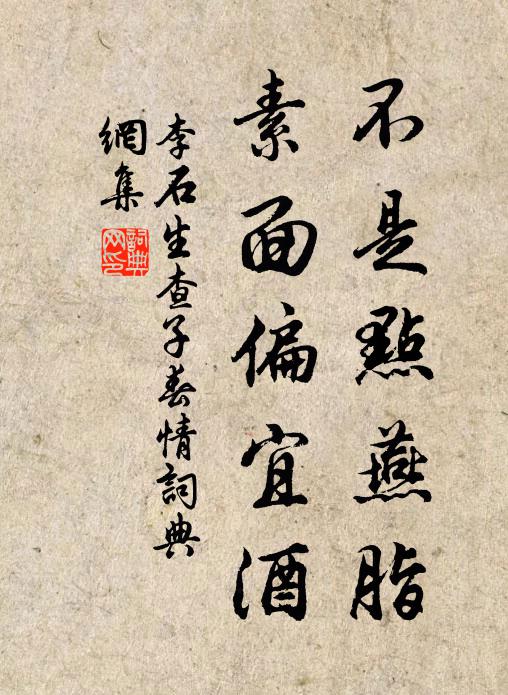 不是點燕脂
素面偏宜酒
李石生查子春情詞典
網集
詞典
网印